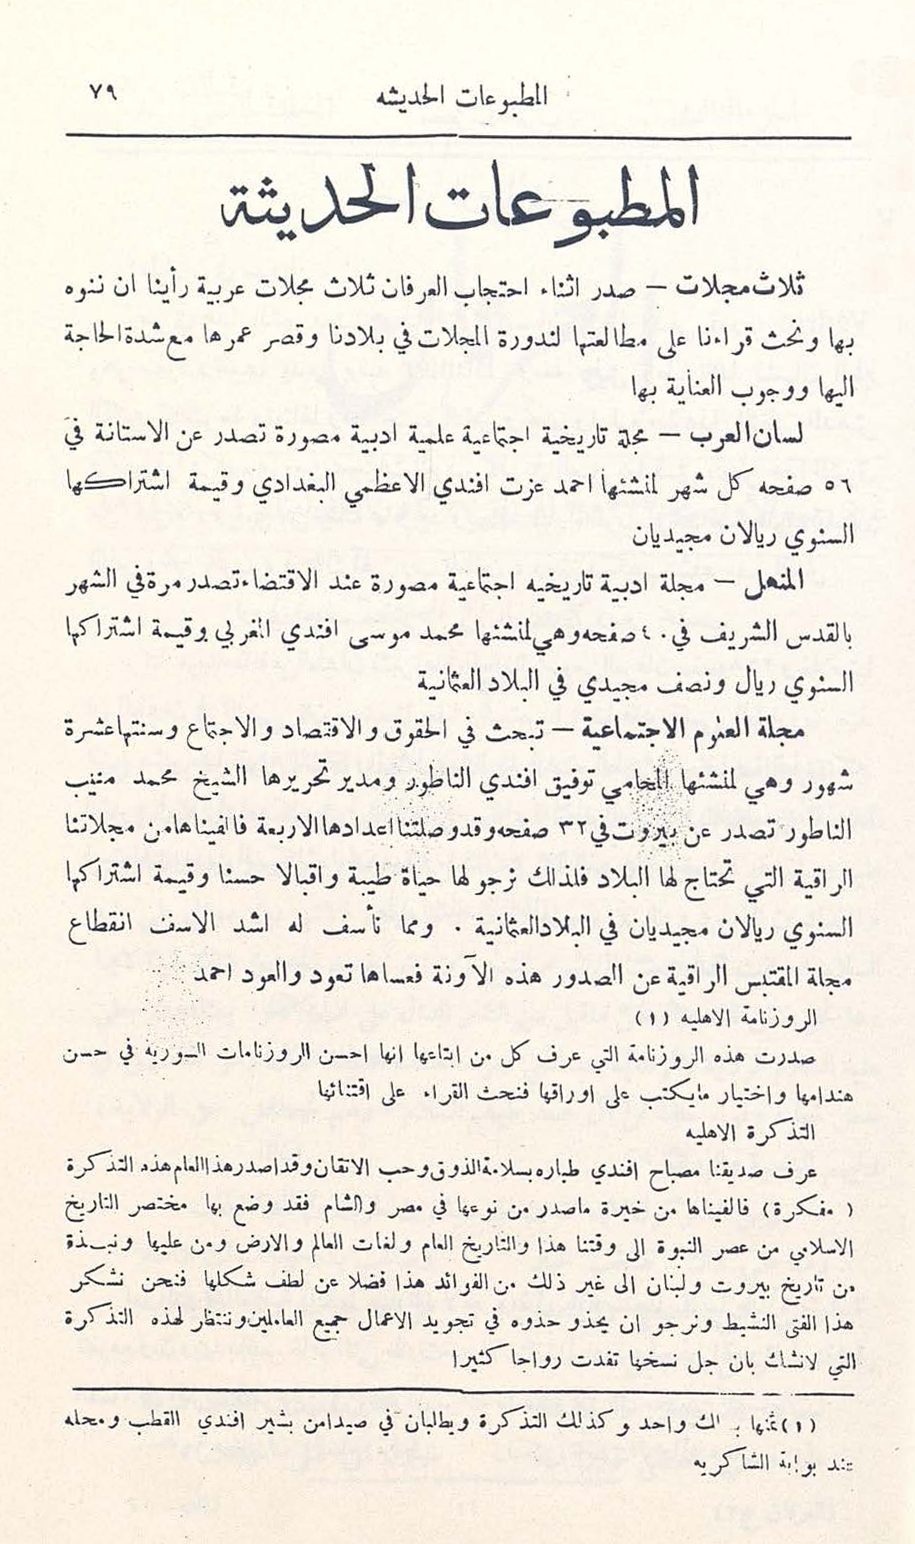 المطبوعات الحديثه ٧٩
المطبوعات الحديثة
ثلاث مجلات — صدر اثناء احتجاب العرفان ثلاث مجلات عربية رأينا ان ننوه
بها ونحث قراءنا على مطالعتها لندورة المجلات في بلادنا وقصر عمرها مع شدة الحاجة
اليها ووجوب العناية بها
لسان العرب — مجلة تاريخية اجتماعية علمية ادبية مصورة تصدر عن الاستانة في
٥٦ صفحه كل شهر لمنشئها احمد عزت افندي الاعظمي البغدادي وقيمة اشتراكها
السنوي ريالان مجيديان
المنهل — مجلة ادبية تاريخيه اجتماعية مصورة عند الاقتضاء تصدر مرة في الشهر
بالقدس الشريف في ٤٠ صفحه وهي لمنشئها محمد موسى افندي المغربي وقيمة اشتراكها
السنوي ريال ونصف مجيدي في البلاد العثمانية
مجلة العلوم الاجتماعية — تبحث في الحقوق والاقتصاد والاجتماع وسنتها عشرة
شهور وهي لمنشئها المحامي توفيق افندي الناطور ومدير تحريرها الشيخ محمد منيب
الناطور تصدر عن بيروت في ٣٢ صفحه وقد وصلتنا اعدادها الاربعة فالفيناها من مجلاتنا
الراقية التي تحتاج لها البلاد فلذلك نرجو لها حياة طيبة واقبالا حسنا وقيمة اشتراكها
السنوي ريالان مجيديان في البلاد العثمانية . ومما نأسف له اشد الاسف انقطاع
مجلة المقتبس الراقية عن الصدور هذه الآونة فعساها تعود والعود احمد
الروزنامة الاهليه (١)
صدرت هذه الروزنامة التي عرف كل من ابتاعها انها احسن الروزنامات السورية في حسن
هندامها واختيار مايكتب على اوراقها فنحث القراء على اقتنائها
التذكرة الاهليه
عرف صديقنا مصباح افندي طباره بسلامة الذوق وحب الاتقان وقد اصدر هذا العام هذه التذكرة
( مفكرة ) فالفيناها من خيرة ماصدر من نوعها في مصر والشام فقد وضع بها مختصر التاريخ
الاسلامي من عصر النبوة الى وقتنا هذا والتاريخ العام ولغات العالم والارض ومن عليها ونبذة
من تاريخ بيروت ولبنان الى غير ذلك من الفوائد هذا فضلا عن لطف شكلها فنحن نشكر
هذا الفتى النشيط ونرجو ان يحذو حذوه في تجويد الاعمال جميع العاملين وننتظر لهذه التذكرة
التي لانشك بان جل نسخها نفدت رواجا كثيرا
(١) ثمنها واحد وكذلك التذكرة ويطلبان في صيدا من بشير افندي القطب ومحله
عند بوابة الشاكريه